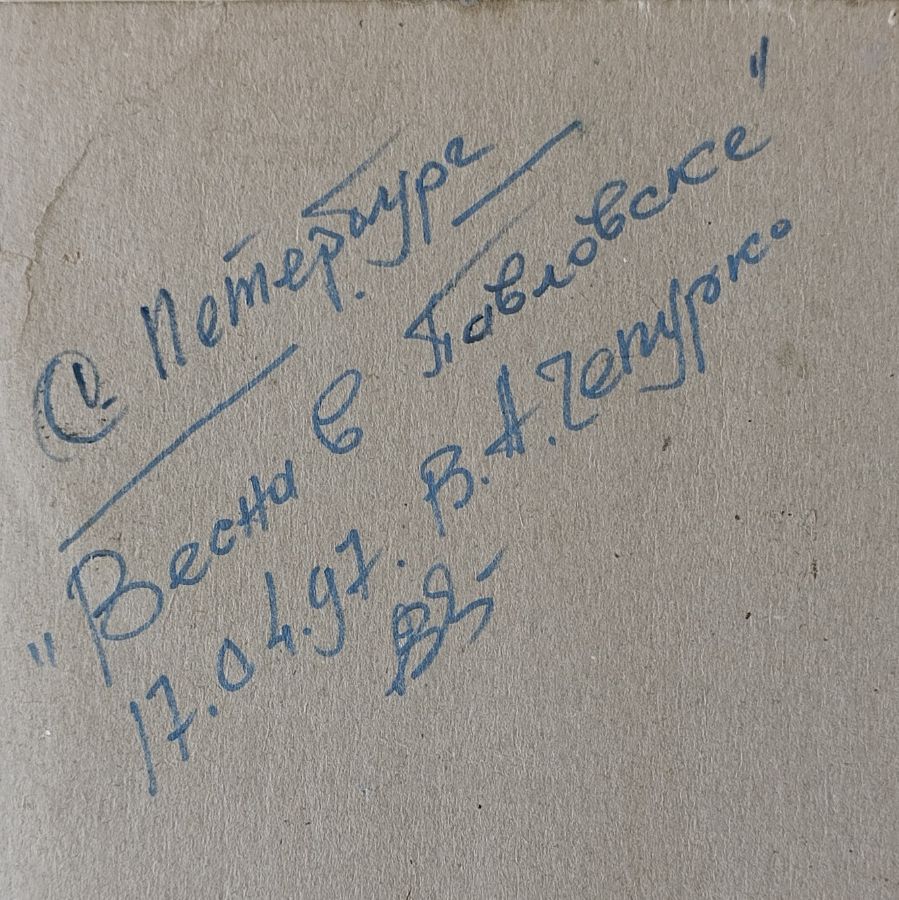 С Петербург
"Весна в Павловске"
17.04.97. В.А.Чепурко